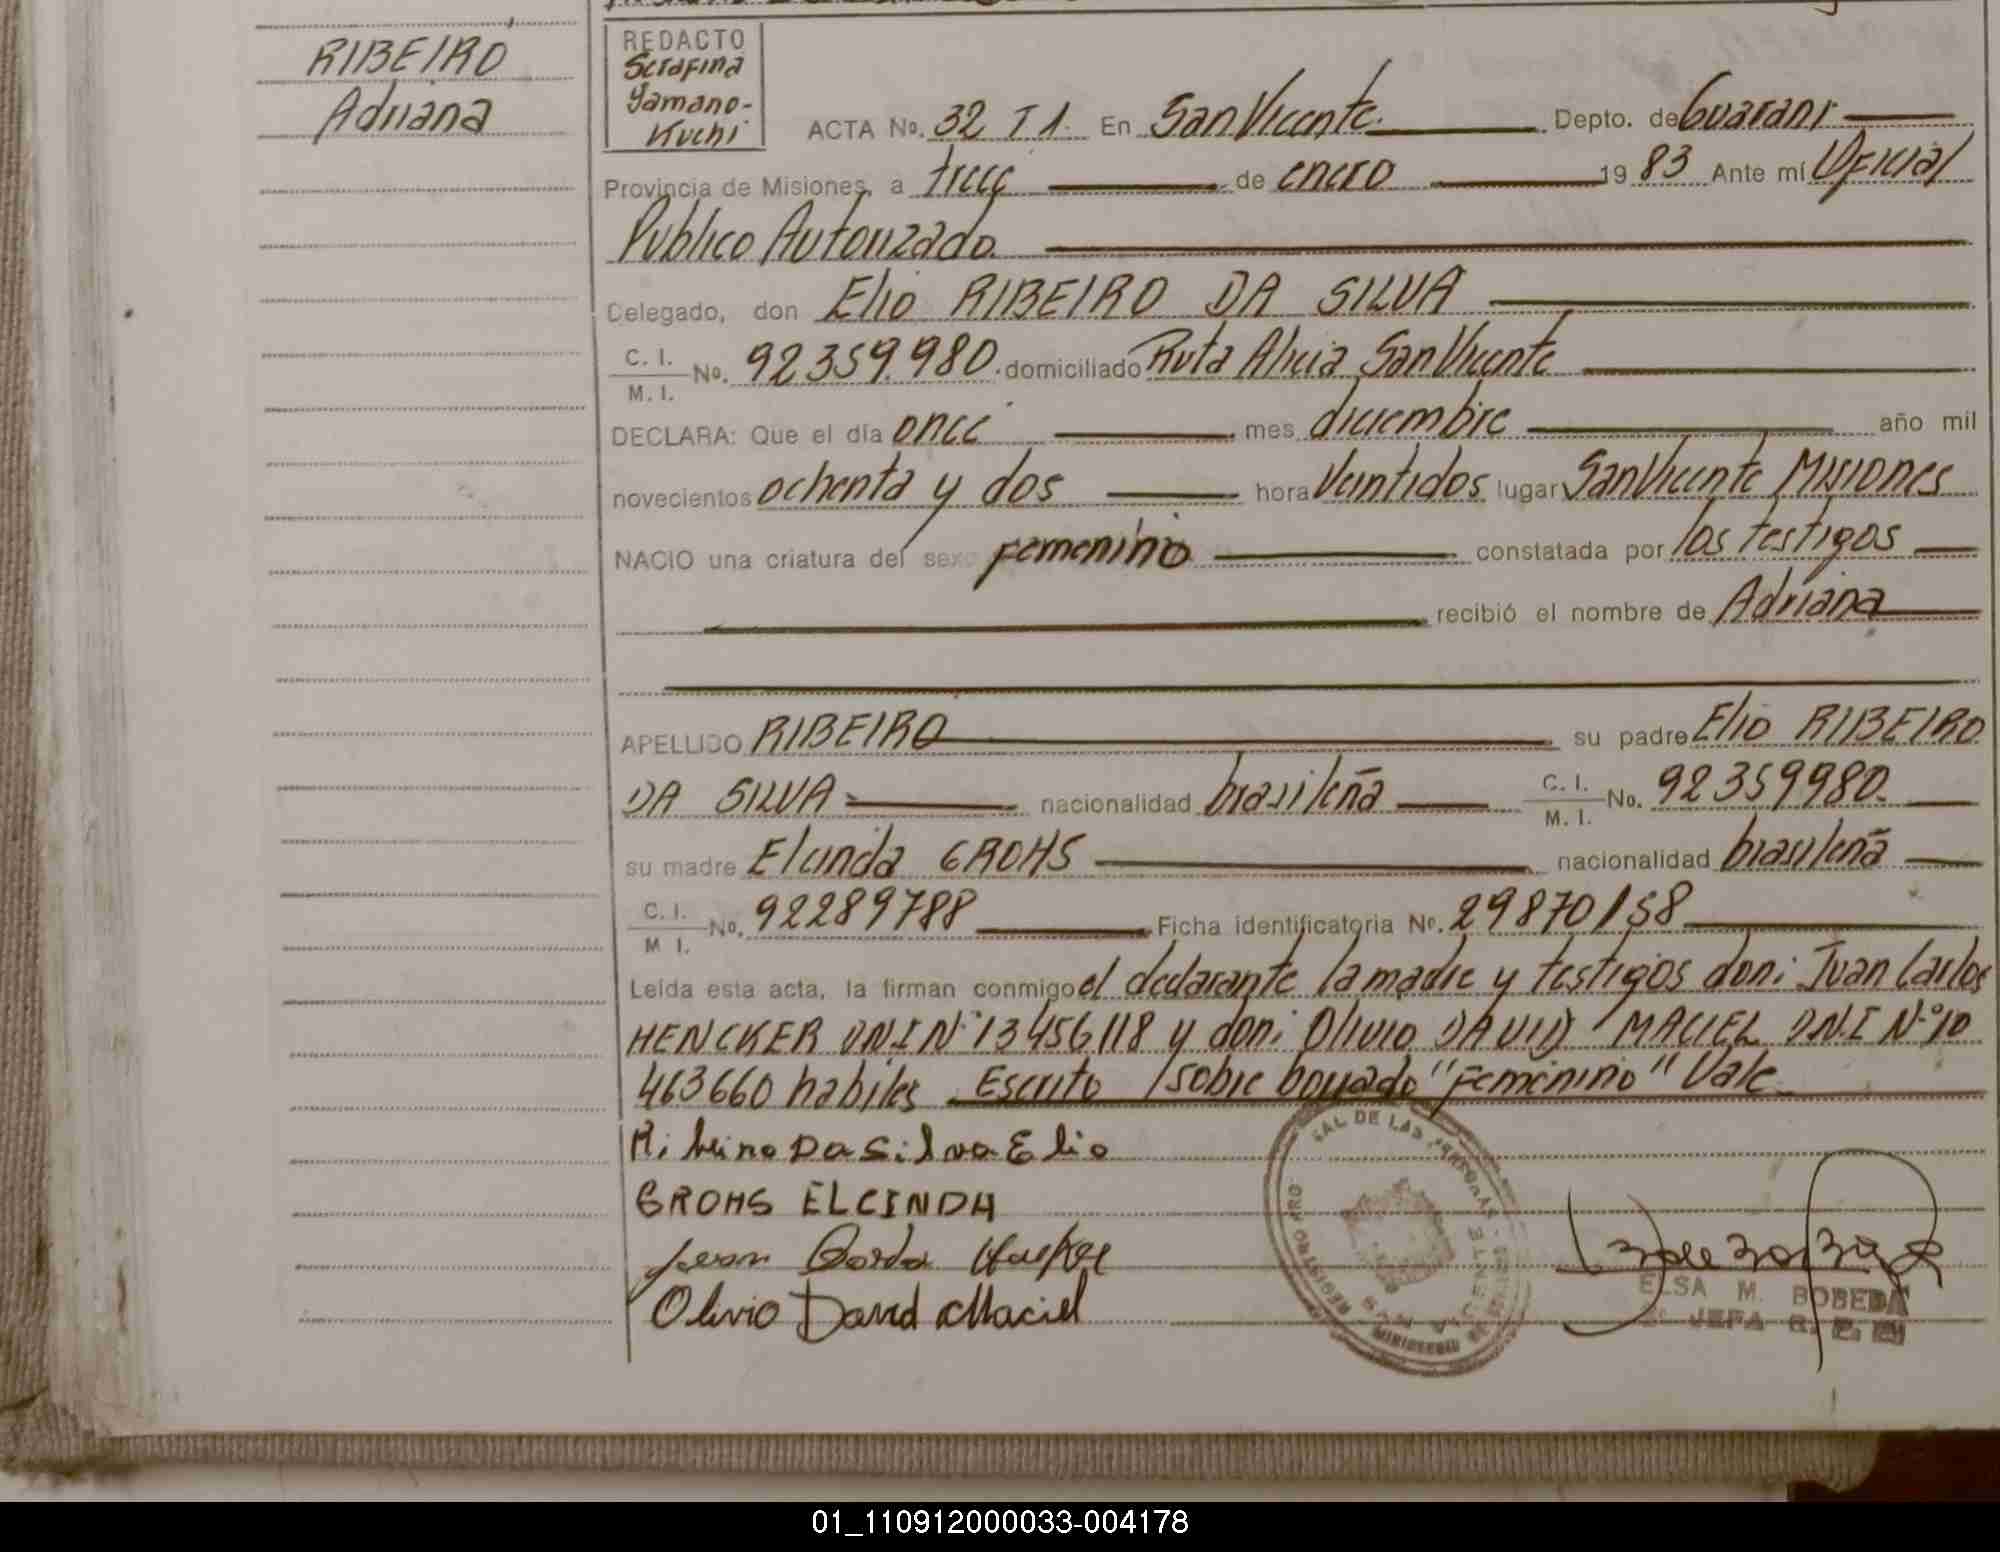 RIBEIRO
Adriana
REDACTO
Serafina
Yamano-
Kuchi
ACTA No. 32 T 1. En San Vicente. Depto. de Guarani
Provincia de Misiones, a trece de enero 19 83 Ante mí Oficial
Publico Autorizado.
Celegado, don Elio RIBEIRO DA SILVA
C. I.
M. I. No. 92359.980. domiciliado Ruta Alicia San Vicente
DECLARA: Que el día once mes diciembre año mil
novecientos ochenta y dos hora Veintidos lugar San Vicente Misiones
NACIO una criatura del sexo femenino constatada por los testigos
recibió el nombre de Adriana
APELLIDO RIBEIRO su padre Elio RIBEIRO
DA SILVA nacionalidad brasileña C. I.
M. I. No. 92359980.
su madre Elcinda GROHS nacionalidad brasileña
C. I.
M I. No. 92289788 Ficha identificatoria No. 29870/58
Leída esta acta, la firman conmigo el declarante la madre y testigos don: Juan Carlos
HENCKER DNI Nº 13456118 y don: Olivio DAVID MACIEL D.N.I Nº 10
463660 habiles Escrito /sobre borrado "Femenino" Vale
Ribeiro Da Silva Elio
GROHS ELCINDA
Olivio David Maciel
REGISTRO PRO AL DE LAS PERSONAS
MINISTERIO DE
ELSA M. BOBEDA
JEFA R. P.
01_110912000033-004178